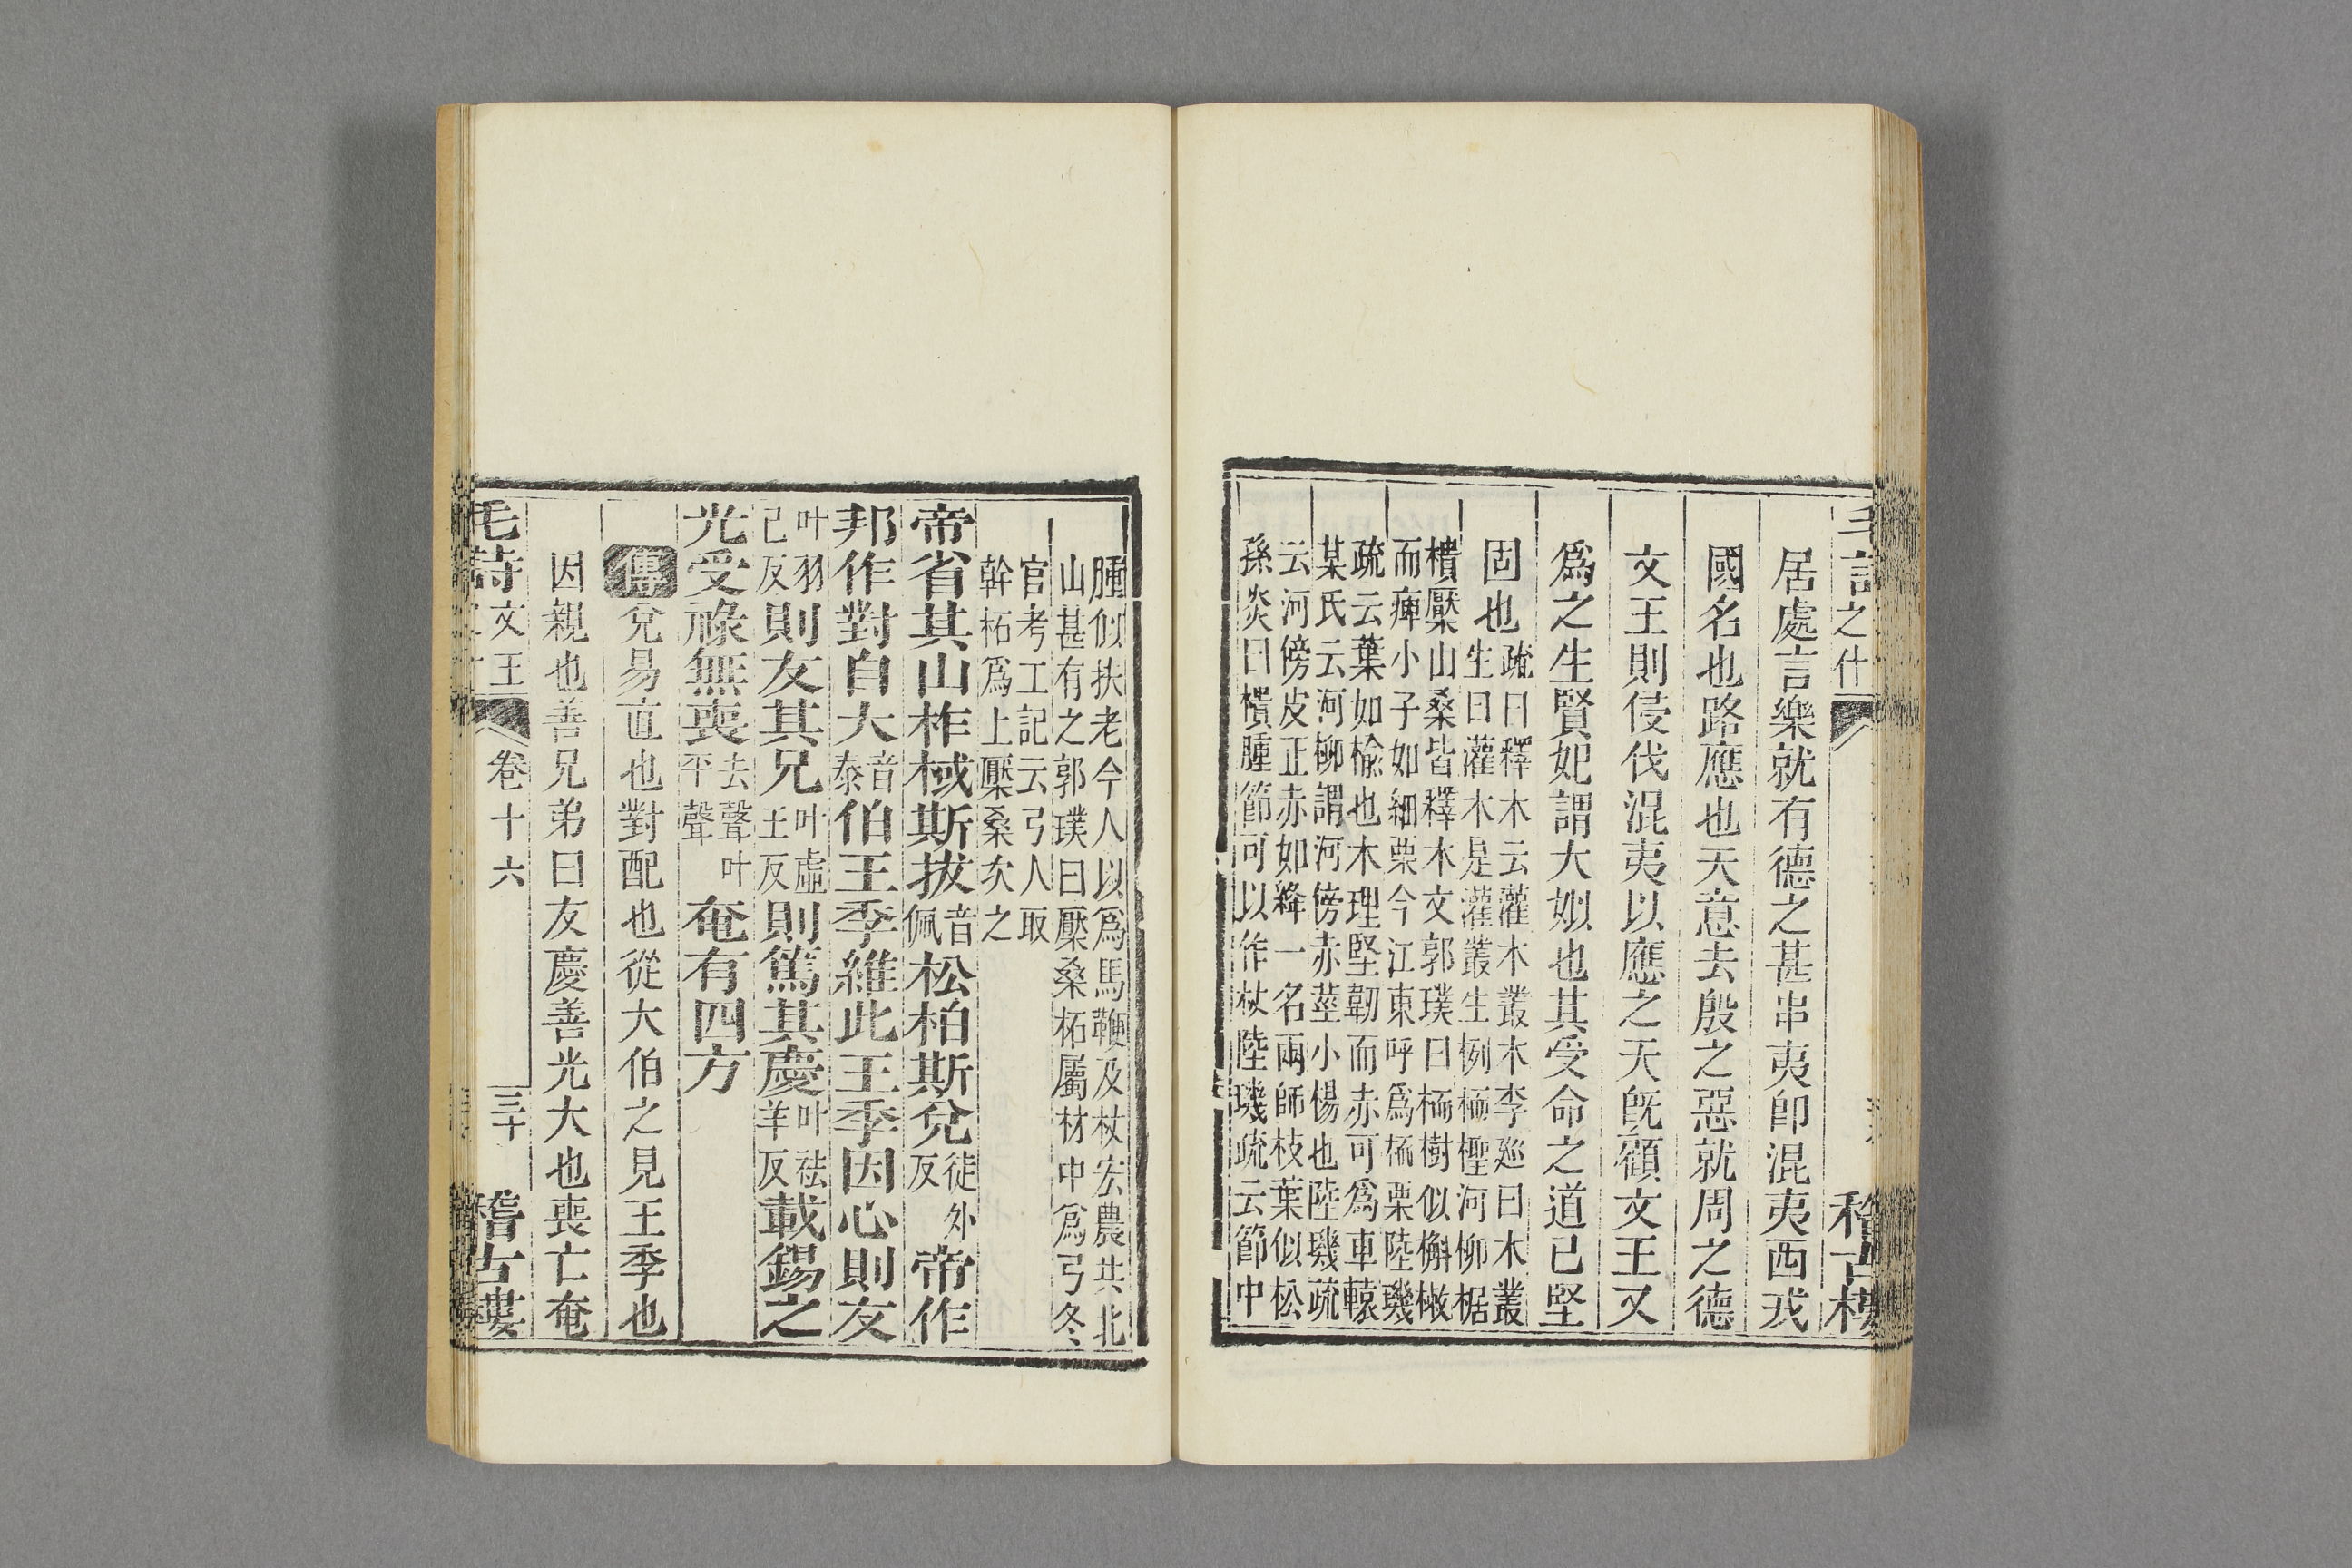 毛詩之什 稽古樓
居處言樂就有德之甚串夷卽混夷西戎
國名也路應也天意去殷之惡就周之德
文王則侵伐混夷以應之天旣顧文王又
爲之生賢妃謂大姒也其受命之道已堅
固也
疏曰釋木云灌木叢木李廵曰木叢
生曰灌木是灌叢生栵栭檉河柳椐
樻檿山桑皆釋木文郭璞曰栭樹似槲樕
而痺小子如細栗今江東呼爲栭栗陸璣
疏云葉如榆也木理堅韌而赤可爲車轅
某氏云河柳謂河傍赤莖小楊也陸璣疏
云河傍皮正赤如絳一名雨師枝葉似松
孫炎曰樻腫節可以作杖陸璣疏云節中
腫似扶老今人以爲馬鞭及杖宏農共北
山甚有之郭璞曰檿桑柘屬材中爲弓冬
官考工記云弓人取
幹柘爲上檿桑次之
帝省其山柞棫斯拔音佩松柏斯兌徒外反帝作
邦作對自大音泰伯王季維此王季因心則友
叶羽己反則友其兄叶虛王反則篤其慶叶祛羊反載錫之
光受祿無喪去聲叶平聲奄有四方
傳兌易直也對配也從大伯之見王季也
因親也善兄弟曰友慶善光大也喪亡奄
毛詩文王 卷十六 三十 稽古樓